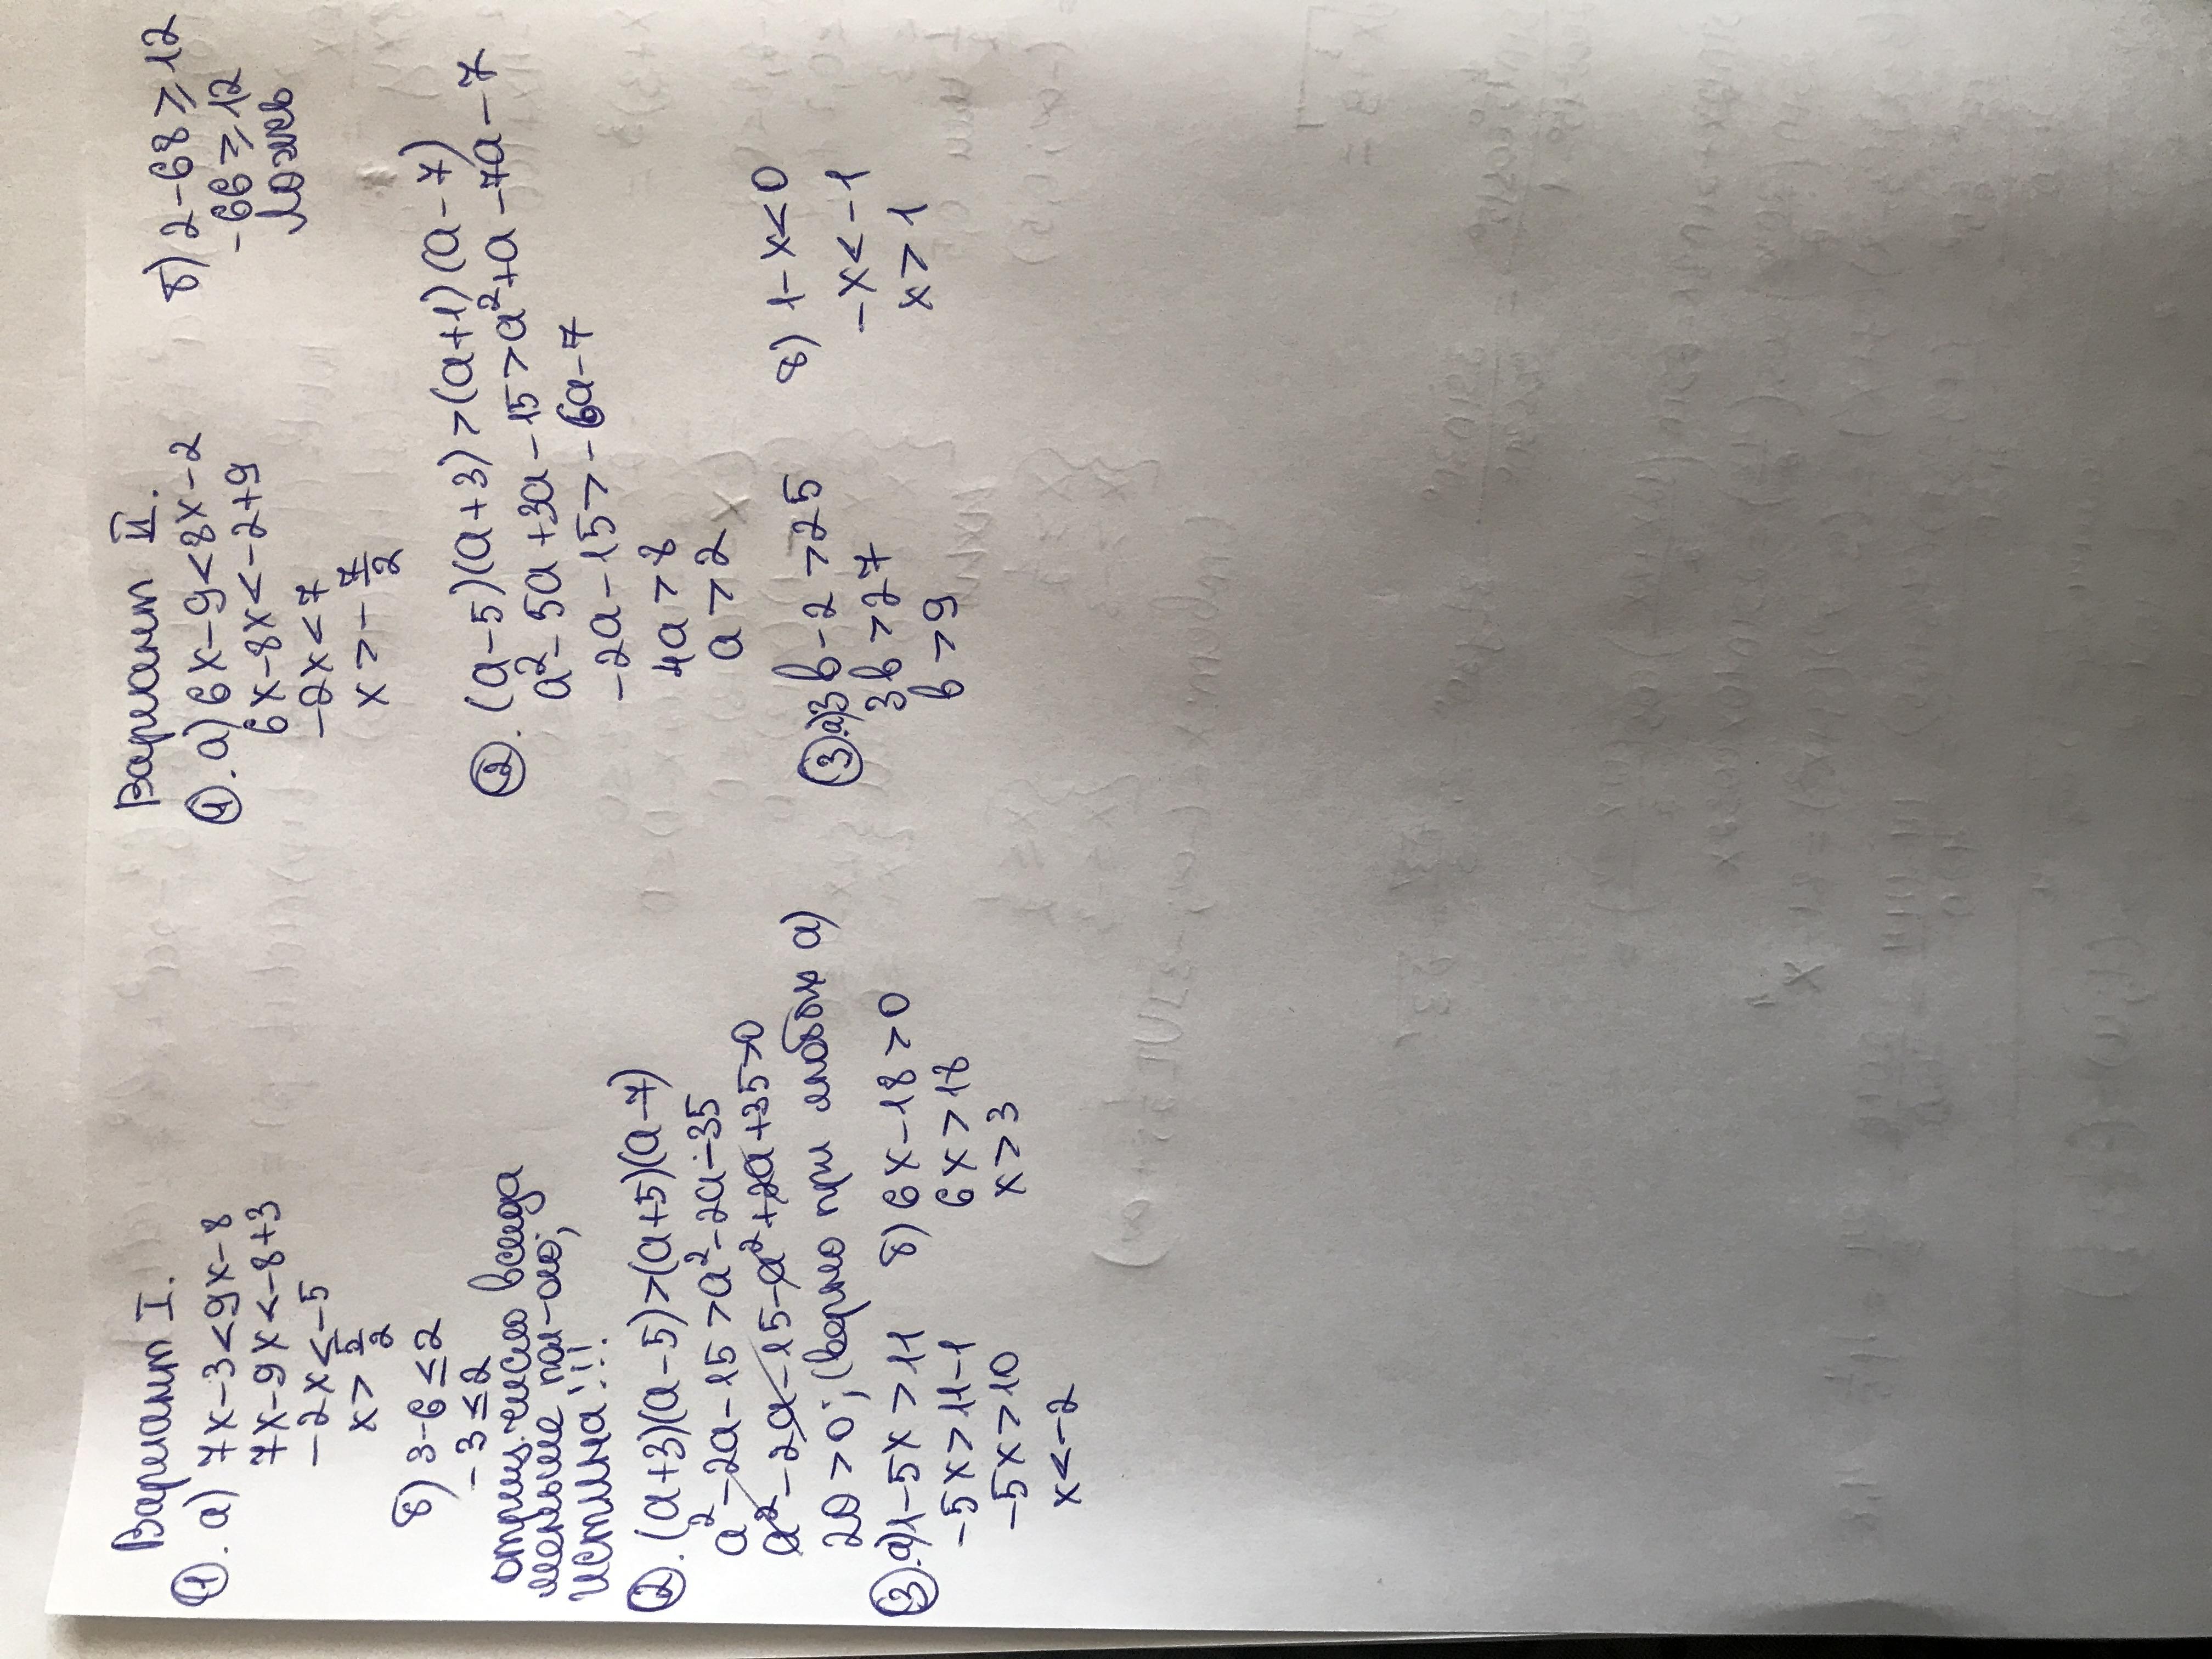 Вариант I.
①. а) 7x-3<9x-8
7x-9x<-8+3
-2x<-5
x>5/2
б) 3-6≤2
-3≤2
отриц. число всегда
меньше пол-ого,
истина!!!
②. (a+3)(a-5)>(a+5)(a-7)
a²-2a-15>a²-2a-35
a²-2a-15-a²+2a+35>0
20>0; (верно при любом a)
③.а) 1-5x>11
-5x>11-1
-5x>10
x<-2
б) 6x-18>0
6x>18
x>3
Вариант II.
①. а) 6x-9<8x-2
6x-8x<-2+9
-2x<7
x>-7/2
б) 2-68≥12
-66≥12
ложь
②. (a-5)(a+3)>(a+1)(a-7)
a²-5a+3a-15>a²+a-7a-7
-2a-15>-6a-7
4a>8
a>2
③.а) 3в-2>25
3в>27
в>9
б) 1-x<0
-x<-1
x>1